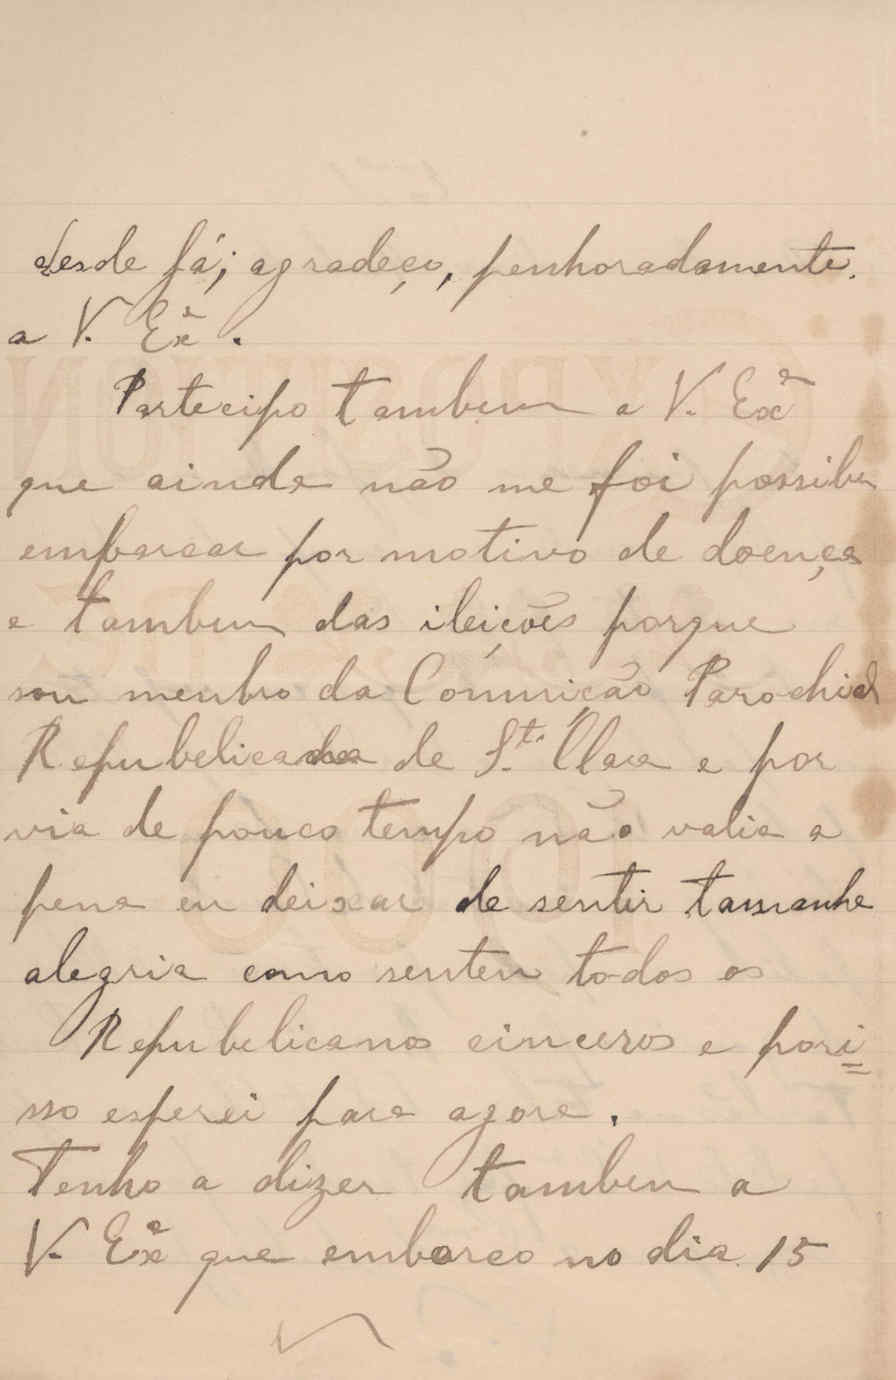 desde já; agradeço, penhoradamente.
a V. Exª.
Partecipo tambem a V. Exª
que ainda não me foi possibel
embarcar por motivo de doença
e tambem das ileições porque
sou menbro da Comuição Parochial
Repubelicana de S.ta Clara e por
via de pouco tempo não valia a
pena eu deixar de sentir tamanha
alegria como senten todos os
Republicanos cinceros e pori=
sso esperei para agora.
Tenho a dizer tamben a
V. Exª que embarco no dia 15